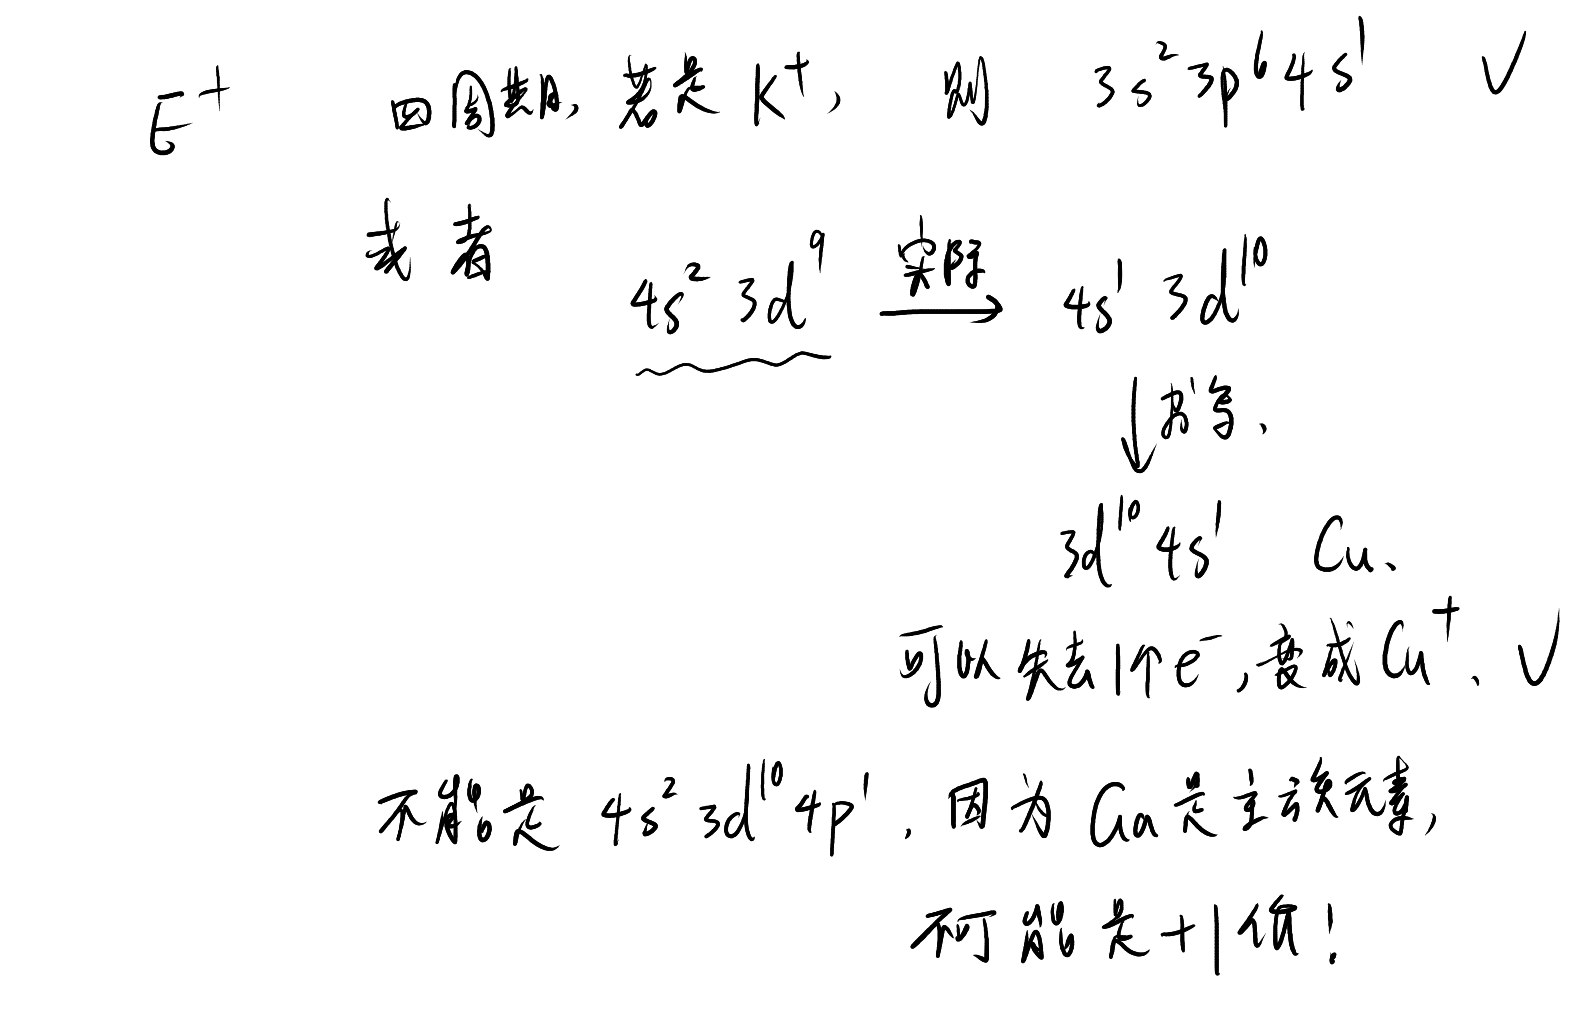 E⁺ 四周期, 若是 K⁺, 则 3s²3p⁶4s¹ √
或者 4s² 3d⁹ 实际→ 4s¹ 3d¹⁰
↓书写、
3d¹⁰ 4s¹ Cu、
可以失去1个e⁻, 变成Cu⁺、√
不能是 4s² 3d¹⁰ 4p¹, 因为 Ga是主族元素,
不可能是+1价!